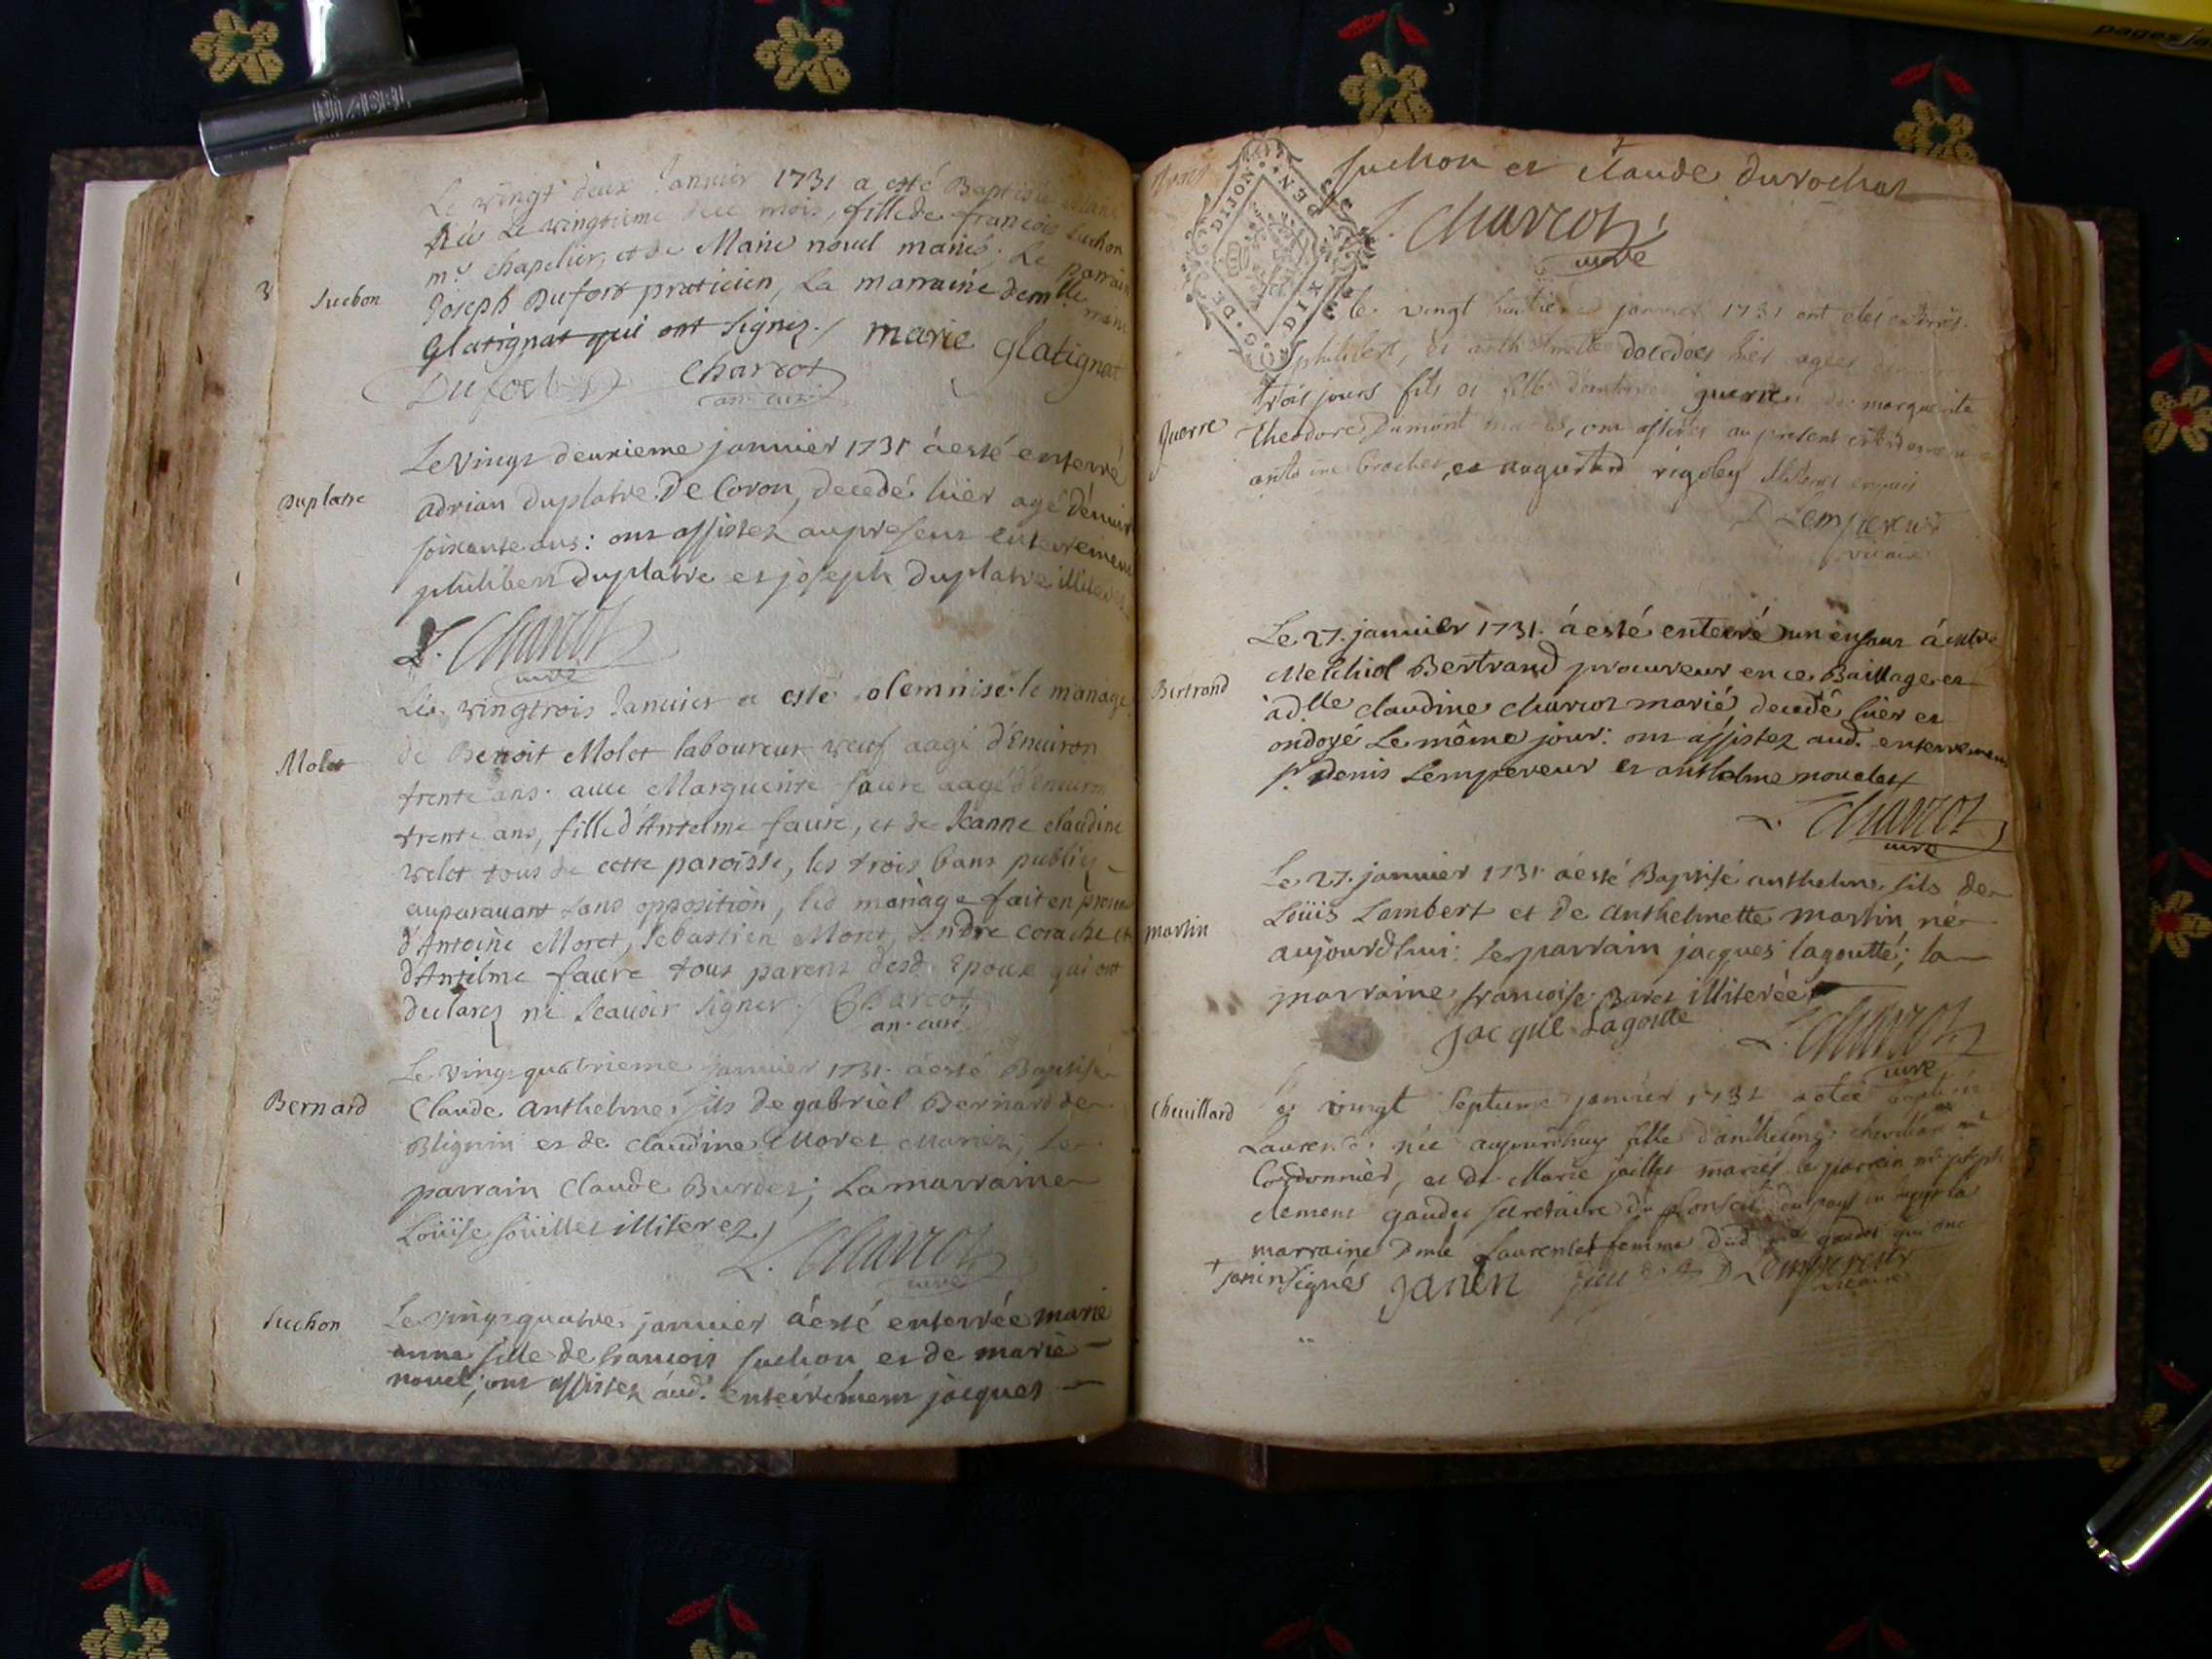 Le vingt deux Janvier 1731 a esté Baptisée
née Le vingtieme dud. mois, fille de françois Suchon
mᵉ chapelier, et de Marie novel mariés. Le parrain
3 Suchon
Joseph Dufort praticien, La marraine demlle marie
Glatignat qui ont signez. / marie glatignat
Dufort Charcot
Le vingt deuxieme janvier 1731 á esté enterré
Duplatre
adrian duplatre de Coron, decedé hier agé d'environ
soixante ans: ont assistez au present enterrement
philibert Duplatre et joseph Duplatre illiterez
L. Charcot
curé
Le vingtrois Janvier a esté solemnisé le mariage
Molet
de Benoit Molet laboureur veuf aagé d'Environ
trente ans. avec Marguerite faure aagé d'Environ
trente ans, fille d'Antelme faure, et de Jeanne claudine
velet tous de cette paroisse, les trois bans publiez
auparavant sans opposition, led mariage fait en presence
d'Antoine Moret, Sebastien Moret, Andre et
d'Antelme faure tous parens desd. Epoux qui ont
declarez ne Scavoir signer. / Charcot
an. curé
Le vingt quatrieme janvier 1731. á esté Baptisé
Bernard
Claude anthelme, fils de gabriel Bernard de
Blignin et de claudine Moret Mariez; Le
parrain Claude Burdet; La marraine
Loüise soüillet illiterez /
L. Charcot
curé
Suchon
Le vingt quatre janvier á esté enterrée marie
anne fille de francois suchon et de marie
novel; ont assistez aud. enterrement jacques
Suchon et claude durochat
L. Charcot
curé
DIJON
DE
DIX
DEN
Le vingt huitieme janvier 1731 ont étés enterrés
philibert, et decedées hier agées
trois jours fils et fille d'antoine guerre et de marguerite
Guerre
theodore Dumont mariés, ont assistés au present enterrement
antoine brochet, et augustand rigoley illiterés enquis
D Lempereur
vicaire
Le 27. janvier 1731. á esté enterré un enfant á
Melchiol Bertrand procureur en ce Baillage et
Bertrand
á dlle claudine charcot marié decedé hier et
ondoyé Le même jour: ont assistez aud. enterrement
Sr. denis Lempereur et anthelme novelet
L. Charcot
curé
Le 27. janvier 1731. á esté Baptisé anthelme, fils de
Loüis Lambert et de anthelmette martin né
martin
aujourd'hui: Le parrain jacques lagoutte; la
marraine, francoise Baret illiterée
jacque Lagoutte
L. Charcot
curé
Le vingt septieme janvier 1731 a etée baptisée
Chevillard
Laurence née aujourdhuy fille d'anthelme chevillard mᵉ
Cordonnier, et de Marie jaillet mariés le parrain mᵉ joseph
clement gaudet secretaire du Conseil du pays la
marraine Dmlle Laurence† femme dud mᵉ gaudet qui ont
† janin signés janin D Lempereur
vicaire